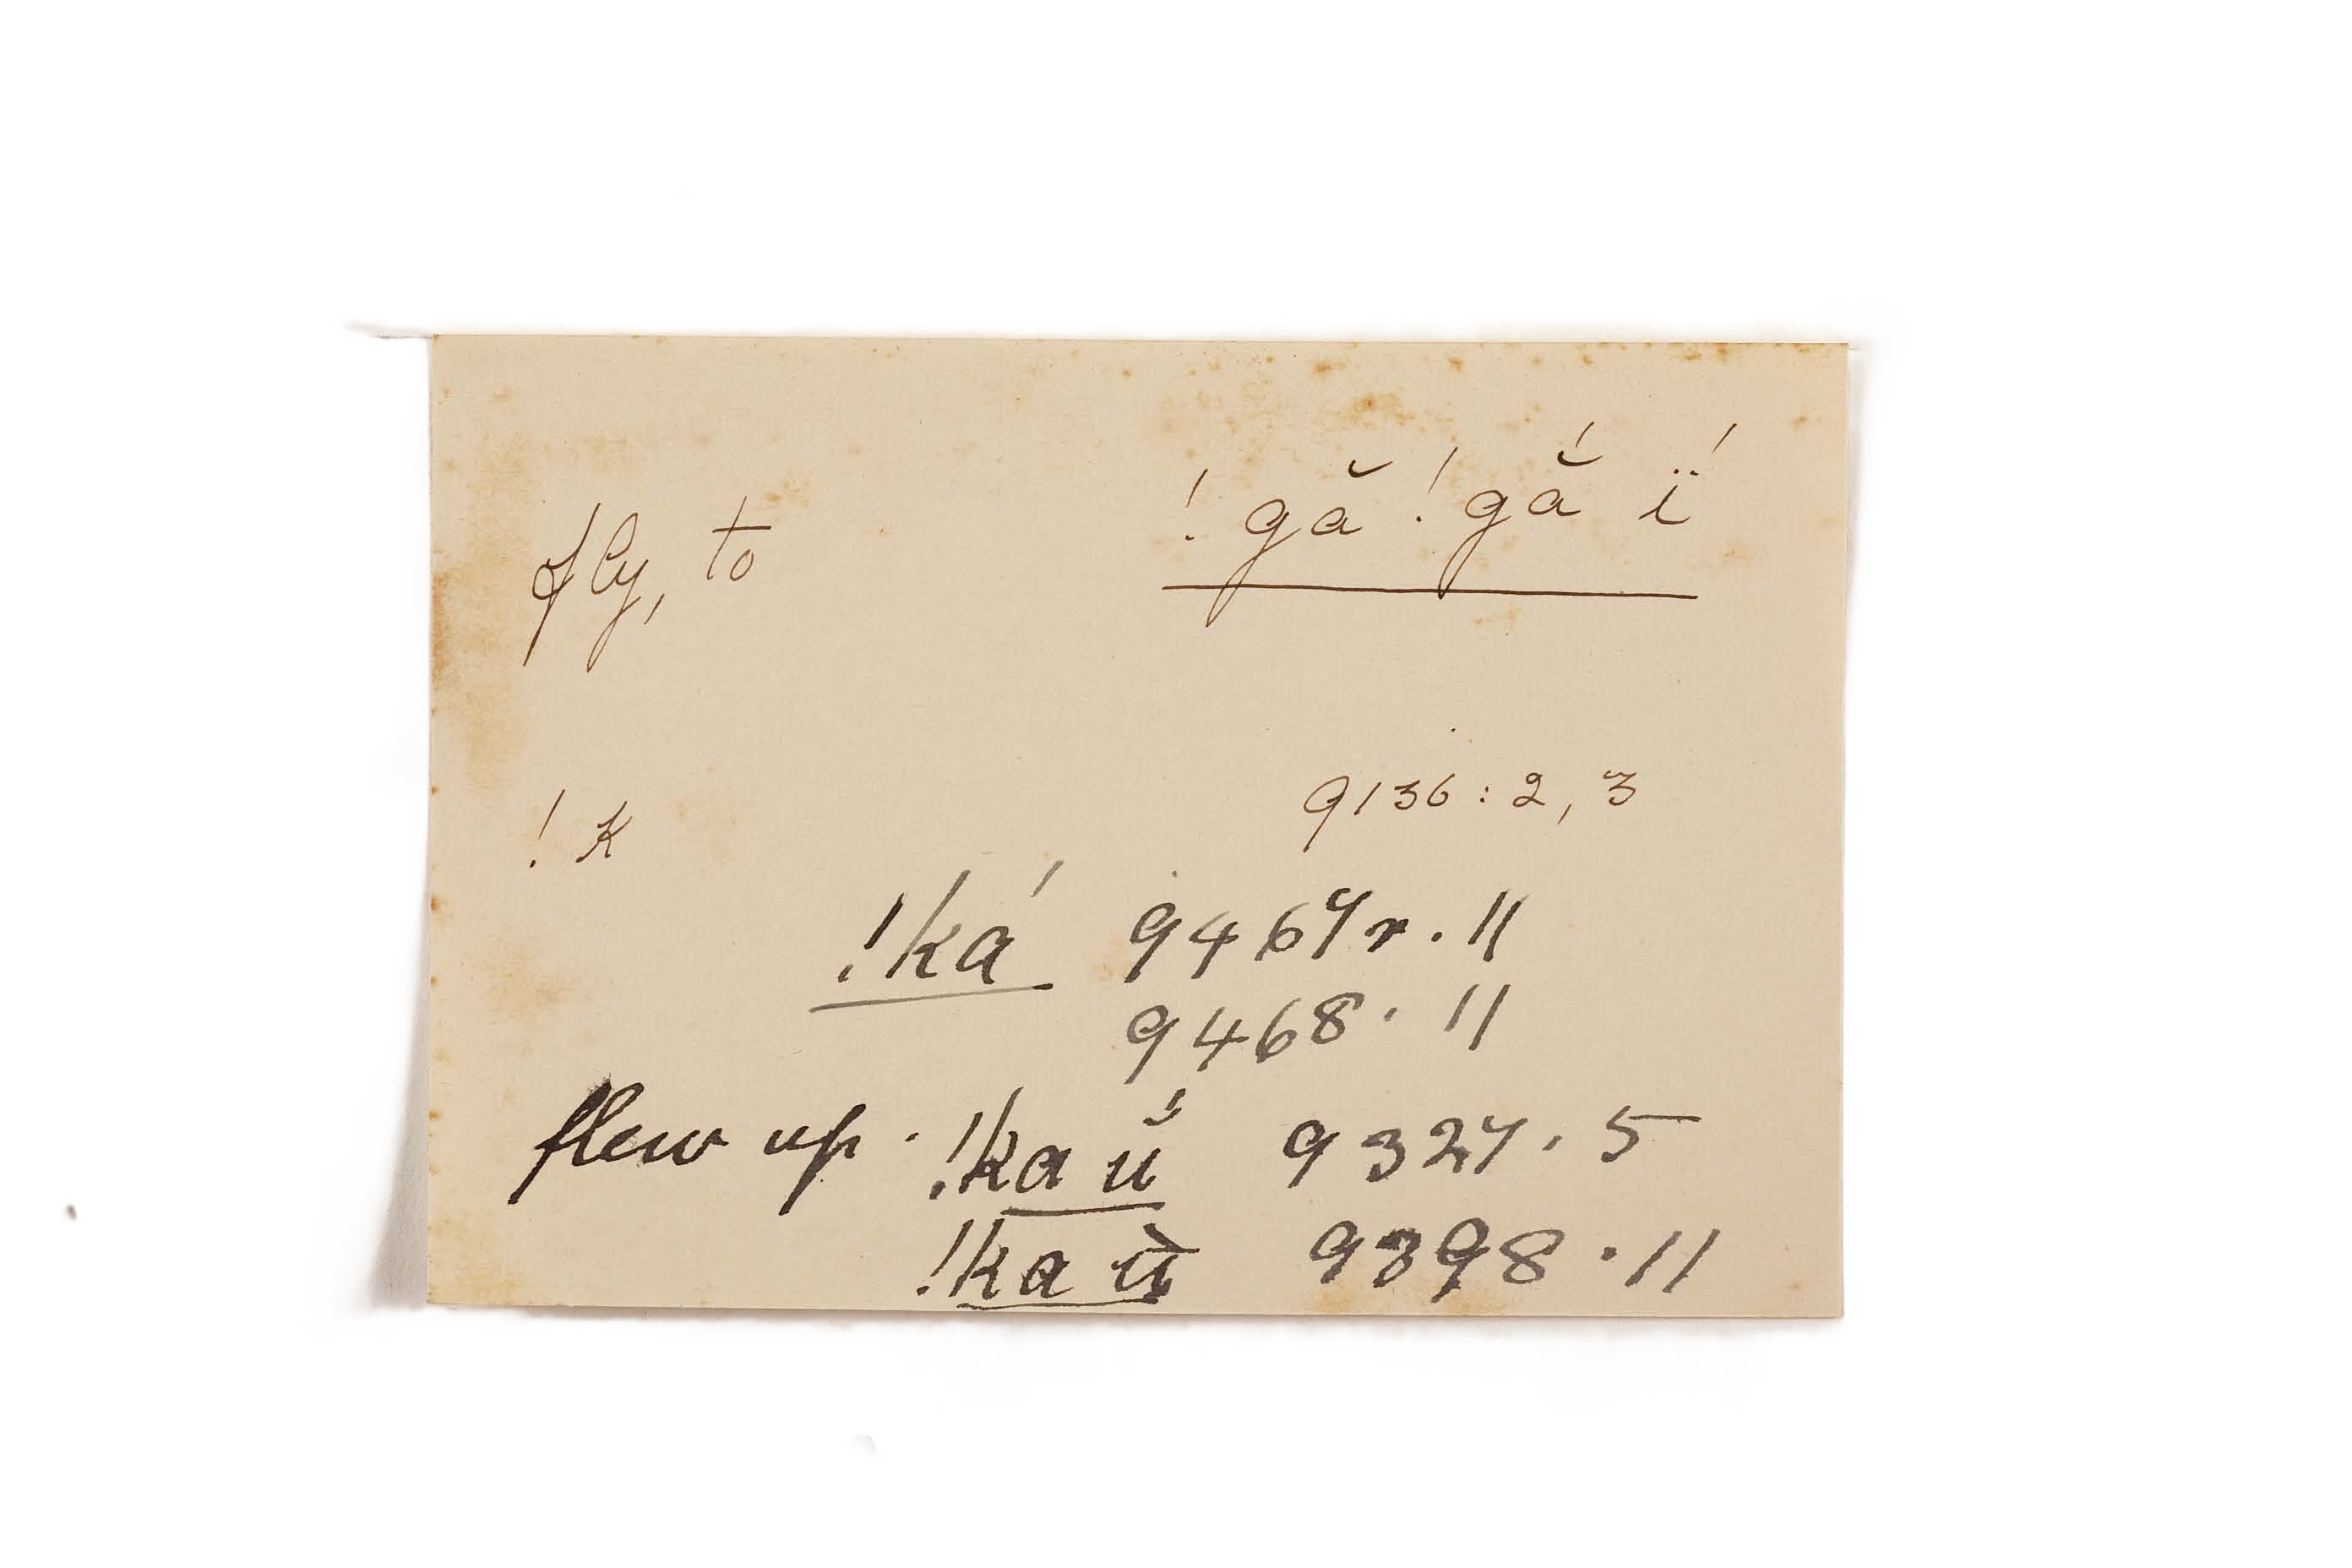 fly, to !gă !gắ ḯ
! K 9136 : 2, 3
!ká 9467r . 11
9468 . 11
flew up . !ka ǘ 9327 . 5
!ka 9398 . 11